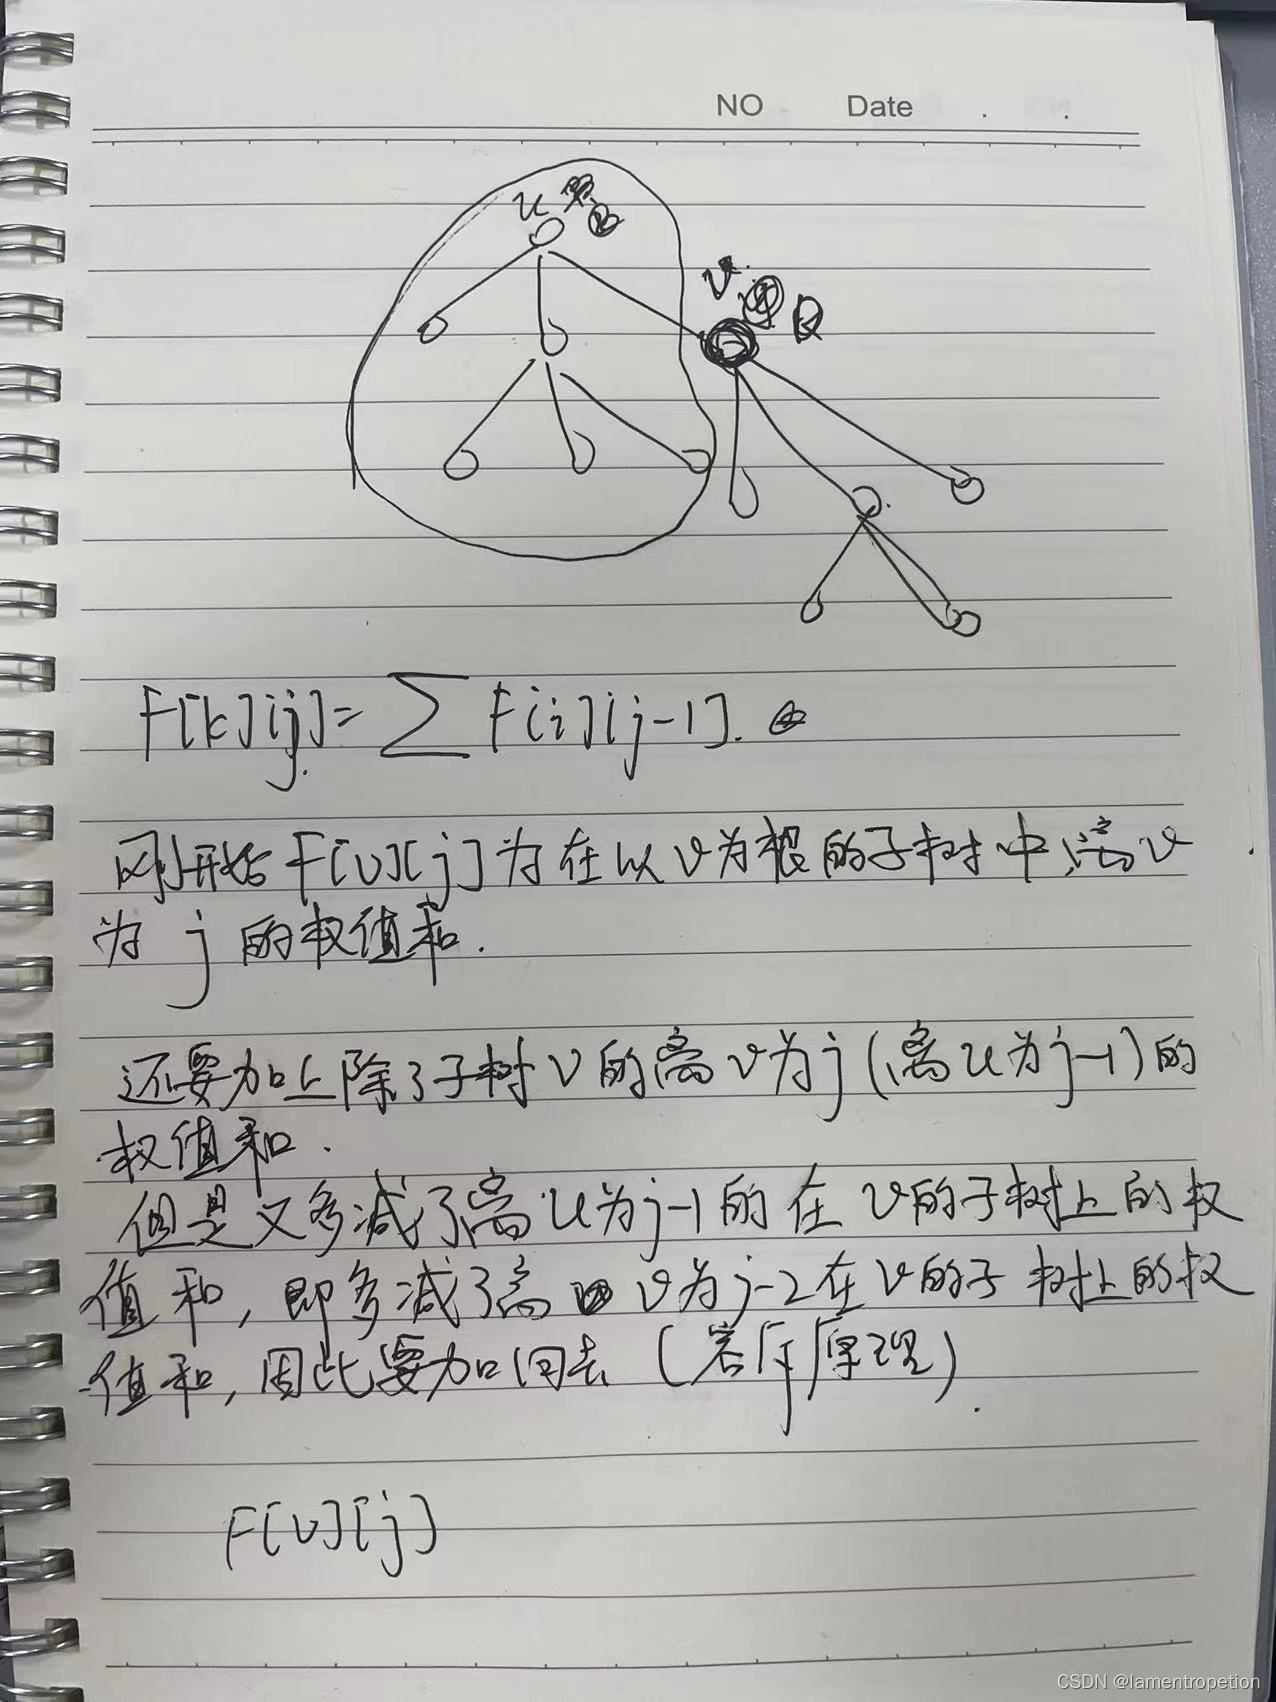 NO Date . .
u
v
F[k][j]=∑F[i][j-1].
刚开始F[v][j]为在以v为根的子树中,离v
为j的权值和.
还要加上除了子树v的离v为j(离u为j-1)的
权值和.
但是又多减了离u为j-1的在v的子树上的权
值和,即多减了离v为j-2在v的子树上的权
值和,因此要加回去(容斥原理).
F[v][j]
CSDN @lamentropetion